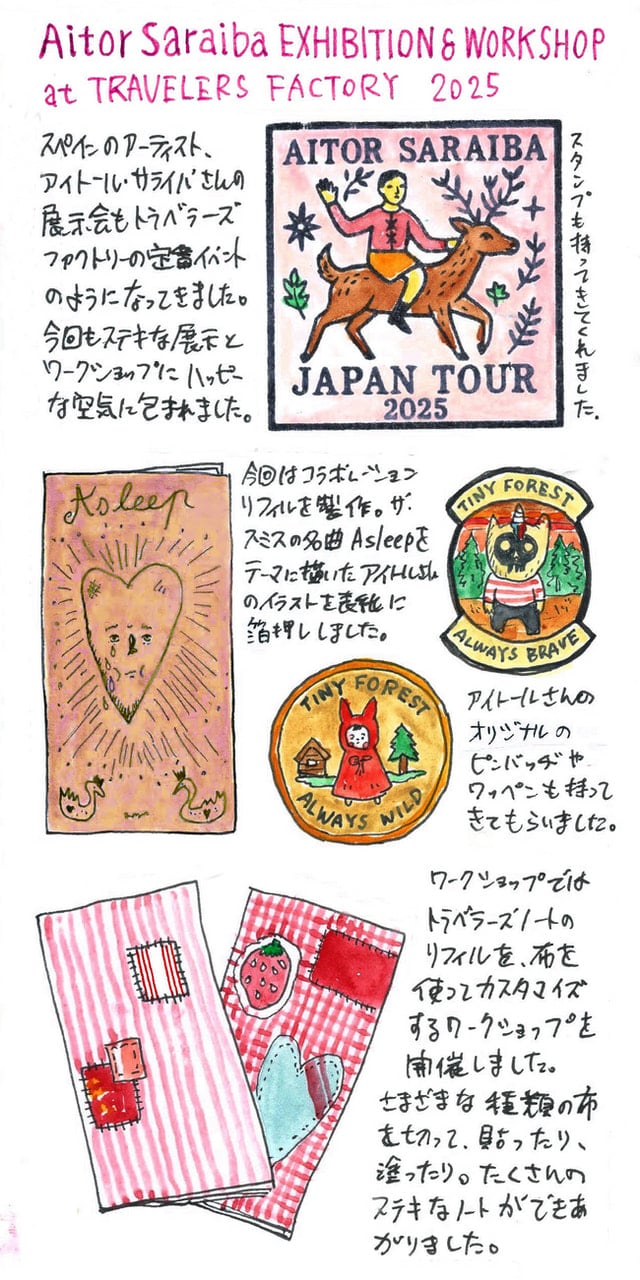 Aitor Saraiba EXHIBITION & WORKSHOP
at TRAVELERS FACTORY 2025
スペインのアーティスト、
アイトール・サライバさんの
展示会もトラベラーズ
ファクトリーの定番イベント
のようになってきました。
今回もステキな展示と
ワークショップにハッピー
な空気に包まれました。
AITOR SARAIBA
JAPAN TOUR
2025
スタンプも持ってきてくれました.
Asleep
今回はコラボレーション
リフィルを製作。ザ・
スミスの名曲Asleepを
テーマに描いたアイトールさん
のイラストを表紙に
箔押ししました。
TINY FOREST
ALWAYS BRAVE
TINY FOREST
ALWAYS WILD
アイトールさんの
オリジナルの
ピンバッヂや
ワッペンも持って
きてもらいました。
ワークショップでは
トラベラーズノートの
リフィルを、布を
使ってカスタマイズ
するワークショップを
開催しました。
さまざまな種類の布
を切って、貼ったり、
塗ったり。たくさんの
ステキなノートができあ
がりました。